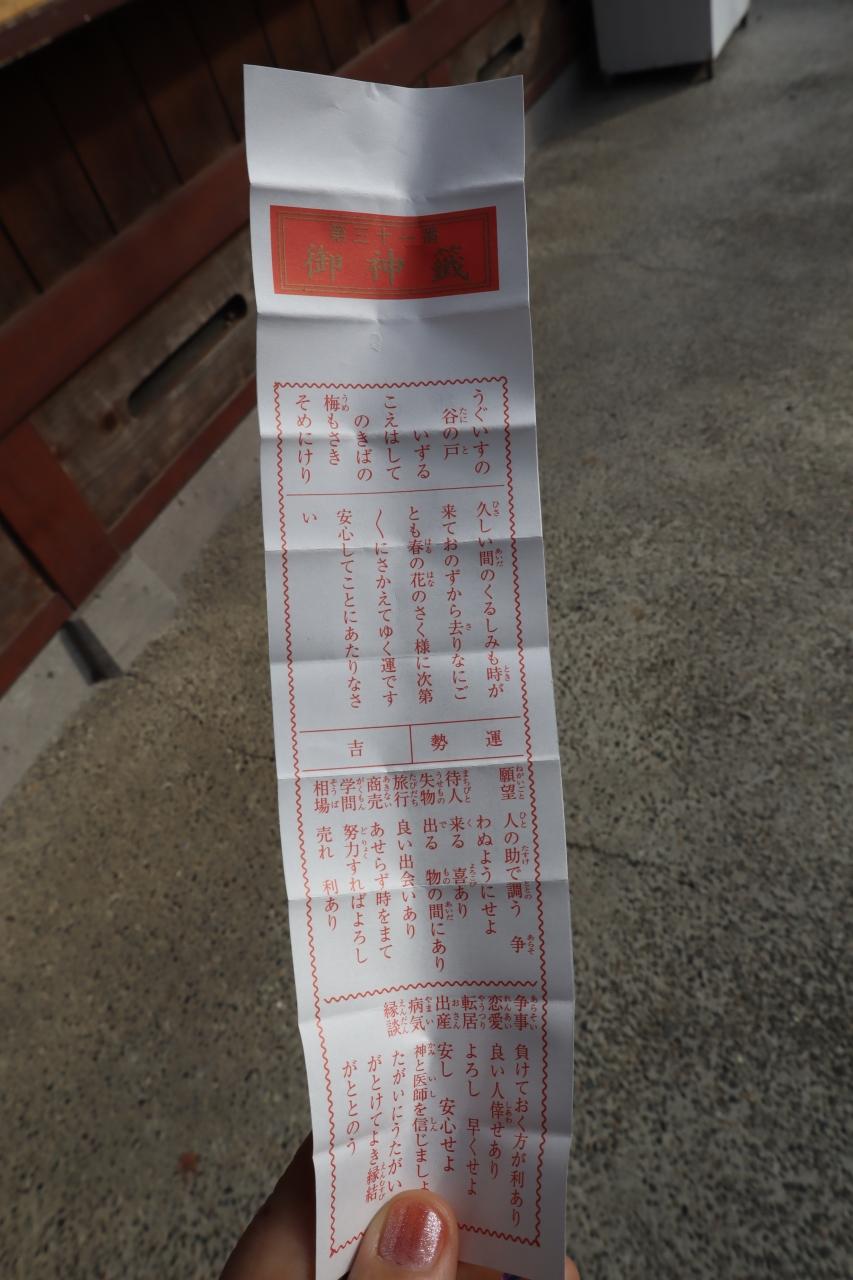 第三十一番
御神籤
うぐいすの
谷の戸
いずる
こえはして
のきばの
梅もさき
そめにけり
久しい間のくるしみも時が
来ておのずから去りなにご
とも春の花のさく様に次第
〱にさかえてゆく運です
安心してことにあたりなさ
い
運勢
吉
願望 人の助で調う 争
わぬようにせよ
待人 来る 喜あり
失物 出る 物の間にあり
旅行 良い出会いあり
商売 あせらず時をまて
学問 努力すればよろし
相場 売れ 利あり
争事 負けておく方が利あり
恋愛 良い人倖せあり
転居 よろし 早くせよ
出産 安し 安心せよ
病気 神と医師を信じましょ
縁談 たがいにうたがい
がとけてよき縁結
がととのう